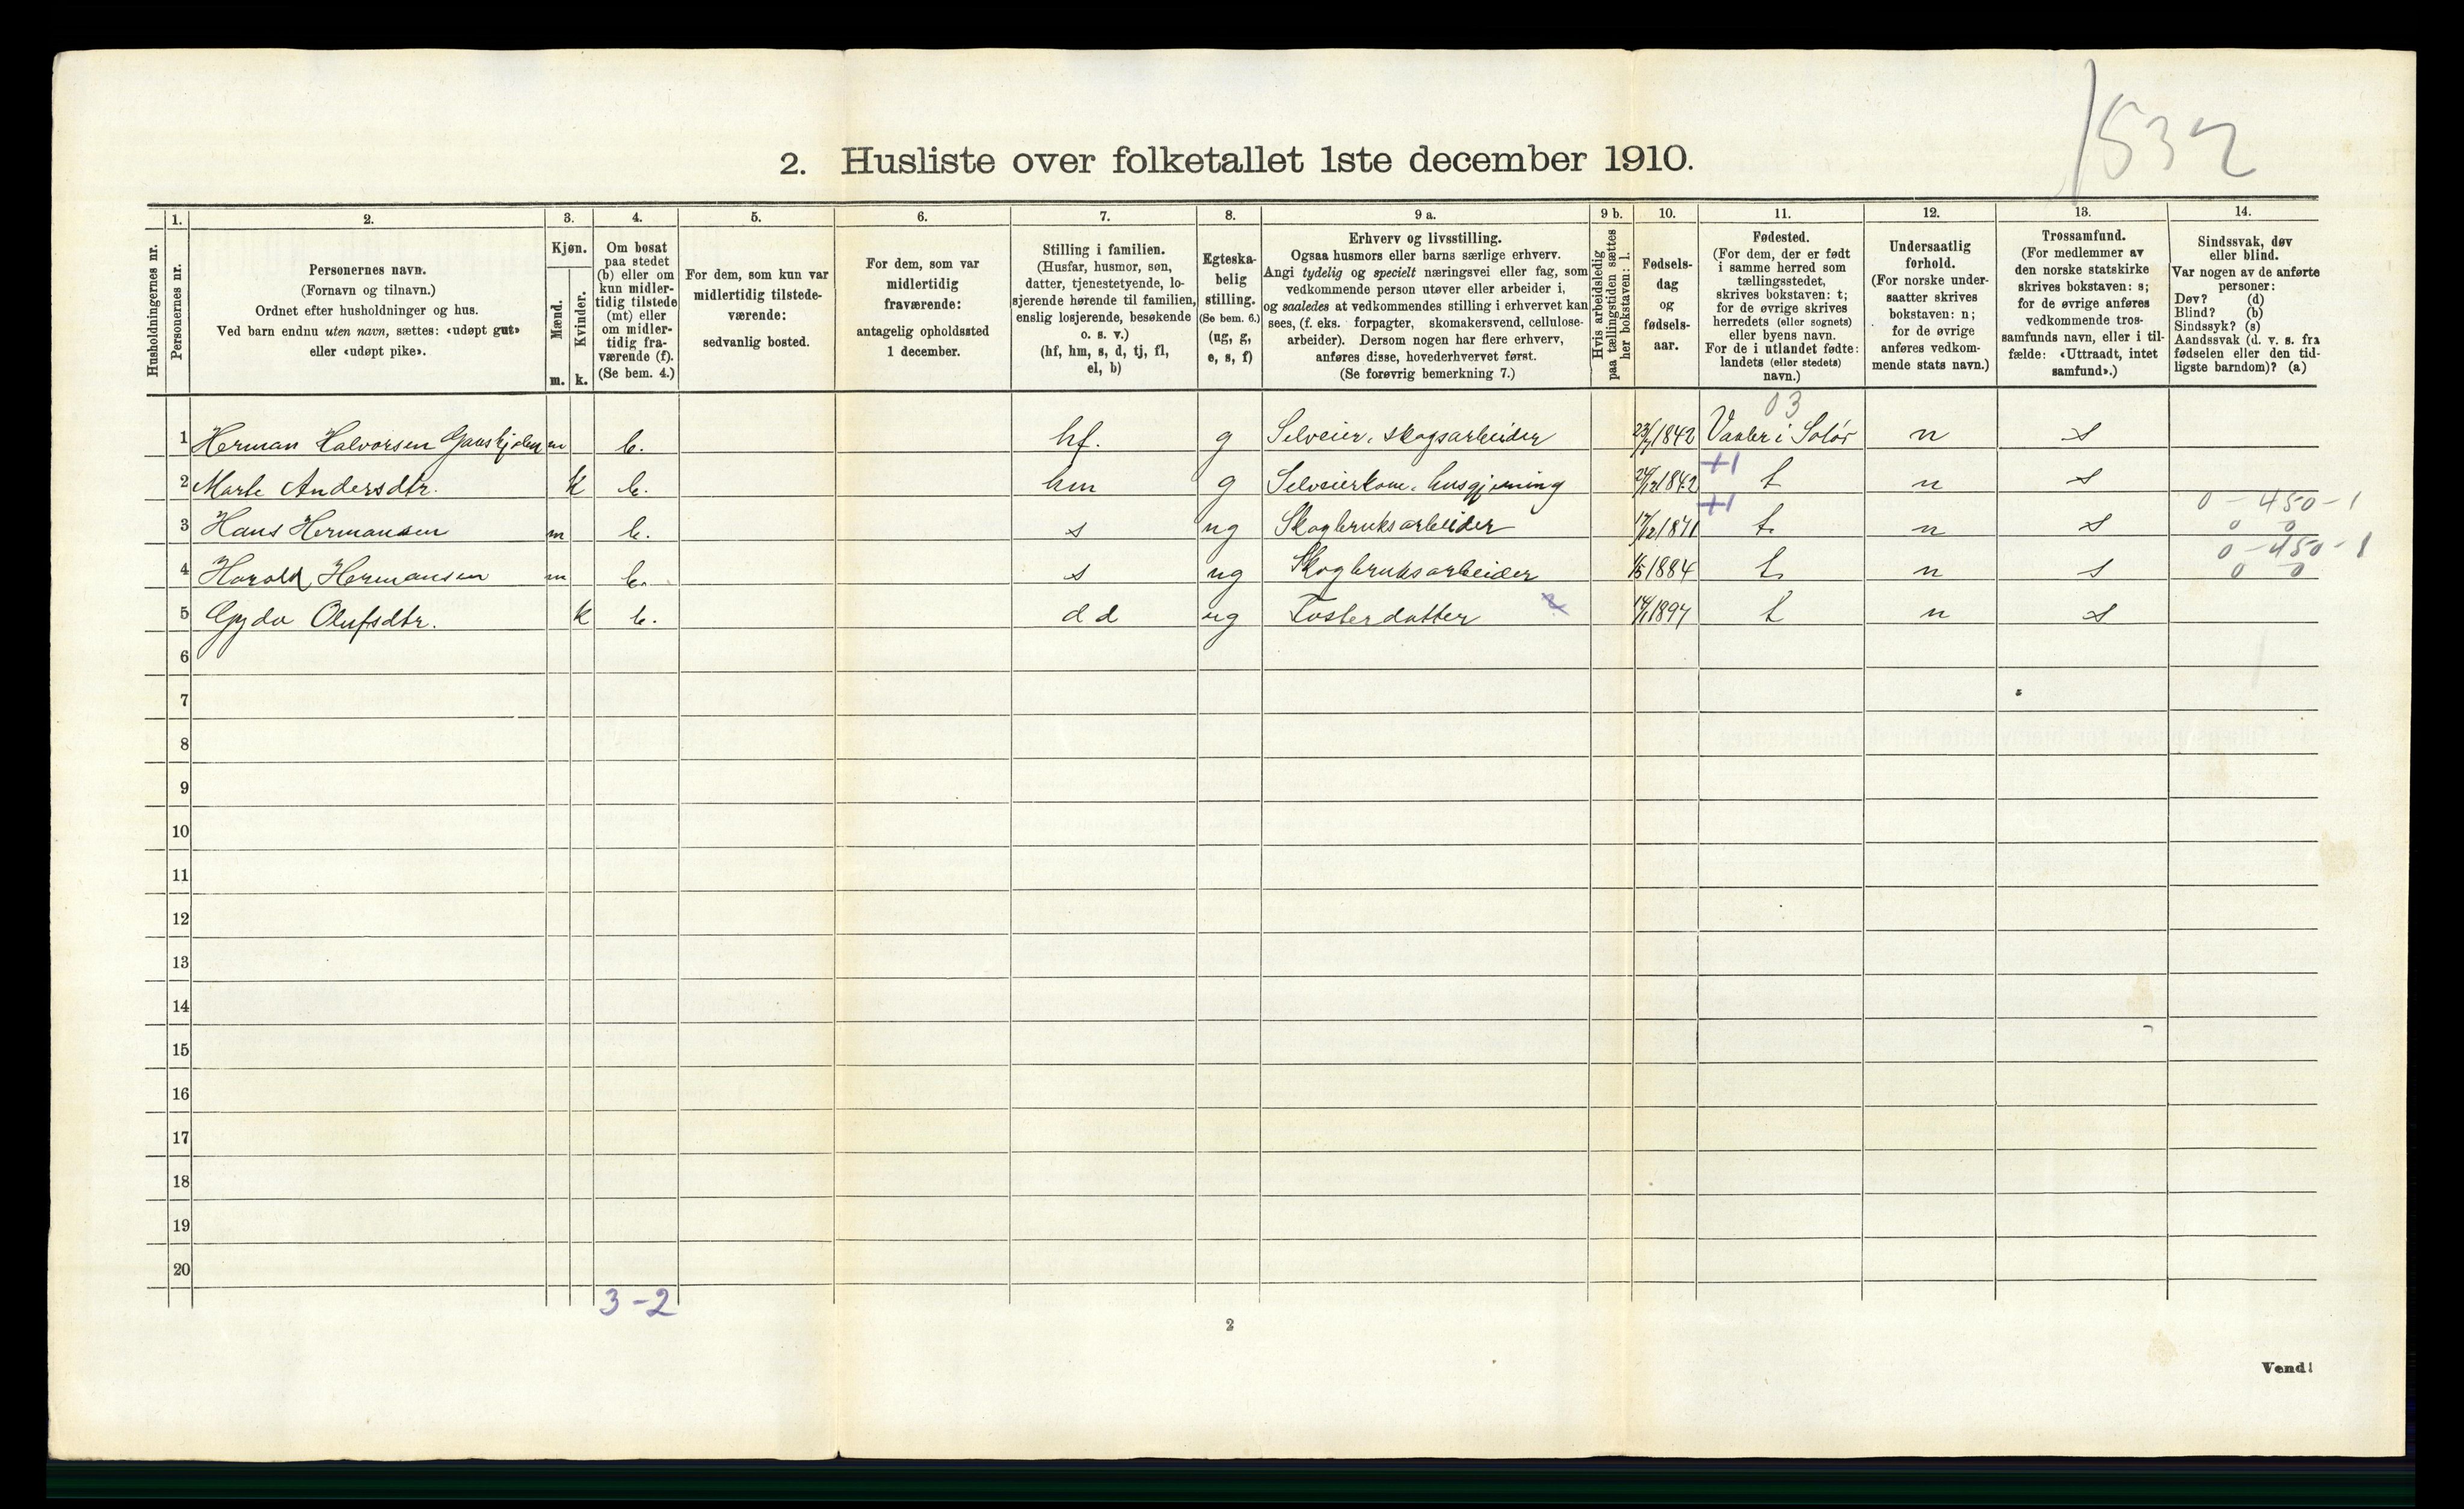 1532
2. Husliste over folketallet 1ste december 1910.
1. 2. 3. 4. 5. 6. 7. 8. 9 a. 9 b. 10. 11. 12. 13. 14.
Husholdningernes nr.
Personernes nr.
Personernes navn.
(Fornavn og tilnavn.)
Ordnet efter husholdninger og hus.
Ved barn endnu uten navn, sættes: «udøpt gut»
eller «udøpt pike».
Kjøn.
Mænd.
Kvinder.
m. k.
Om bosat
paa stedet
(b) eller om
kun midler-
tidig tilstede
(mt) eller
om midler-
tidig fra-
værende (f).
(Se bem. 4.)
For dem, som kun var
midlertidig tilstede-
værende:
sedvanlig bosted.
For dem, som var
midlertidig
fraværende:
antagelig opholdssted
1 december.
Stilling i familien.
(Husfar, husmor, søn,
datter, tjenestetyende, lo-
sjerende hørende til familien,
enslig losjerende, besøkende
o. s. v.)
(hf, hm, s, d, tj, fl,
el, b)
Egteska-
belig
stilling.
(Se bem. 6.)
(ug, g,
e, s, f)
Erhverv og livsstilling.
Ogsaa husmors eller barns særlige erhverv.
Angi tydelig og specielt næringsvei eller fag, som
vedkommende person utøver eller arbeider i,
og saaledes at vedkommendes stilling i erhvervet kan
sees, (f. eks. forpagter, skomakersvend, cellulose-
arbeider). Dersom nogen har flere erhverv,
anføres disse, hovederhvervet først.
(Se forøvrig bemerkning 7.)
Hvis arbeidsledig
paa tællingstiden sættes
her bokstaven: l.
Fødsels-
dag
og
fødsels-
aar.
Fødested.
(For dem, der er født
i samme herred som
tællingsstedet,
skrives bokstaven: t;
for de øvrige skrives
herredets (eller sognets)
eller byens navn.
For de i utlandet fødte:
landets (eller stedets)
navn.)
Undersaatlig
forhold.
(For norske under-
saatter skrives
bokstaven: n;
for de øvrige
anføres vedkom-
mende stats navn.)
Trossamfund.
(For medlemmer av
den norske statskirke
skrives bokstaven: s;
for de øvrige anføres
vedkommende tros-
samfunds navn, eller i til-
fælde: «Uttraadt, intet
samfund».)
Sindssvak, døv
eller blind.
Var nogen av de anførte
personer:
Døv? (d)
Blind? (b)
Sindssyk? (s)
Aandssvak (d. v. s. fra
fødselen eller den tid-
ligste barndom)? (a)
03
1 Herman Halvorsen m b. hf. g Selveier, skogsarbeider 23/7 1842 Vaaler i Solør n s
+1
2 Marte Andersdtr. k b. hm g Selveierkone, husgjerning 1842 t n s
+1 0 - 450 - 1
3 Hans Hermansen m b. s ug Skogbruksarbeider 17/12 1871 t. n s 0 0
0 - 450 - 1
4 Harald Hermansen m b. s ug Skogbruksarbeider 1/5 1884 t. n s 0 0
5 Gyda Olufsdtr. k b. d d ug Fosterdatter 14/1 1897 t n s
6
7
8
9
10
11
12
13
14
15
16
17
18
19
20
3 - 2
2
Vend!